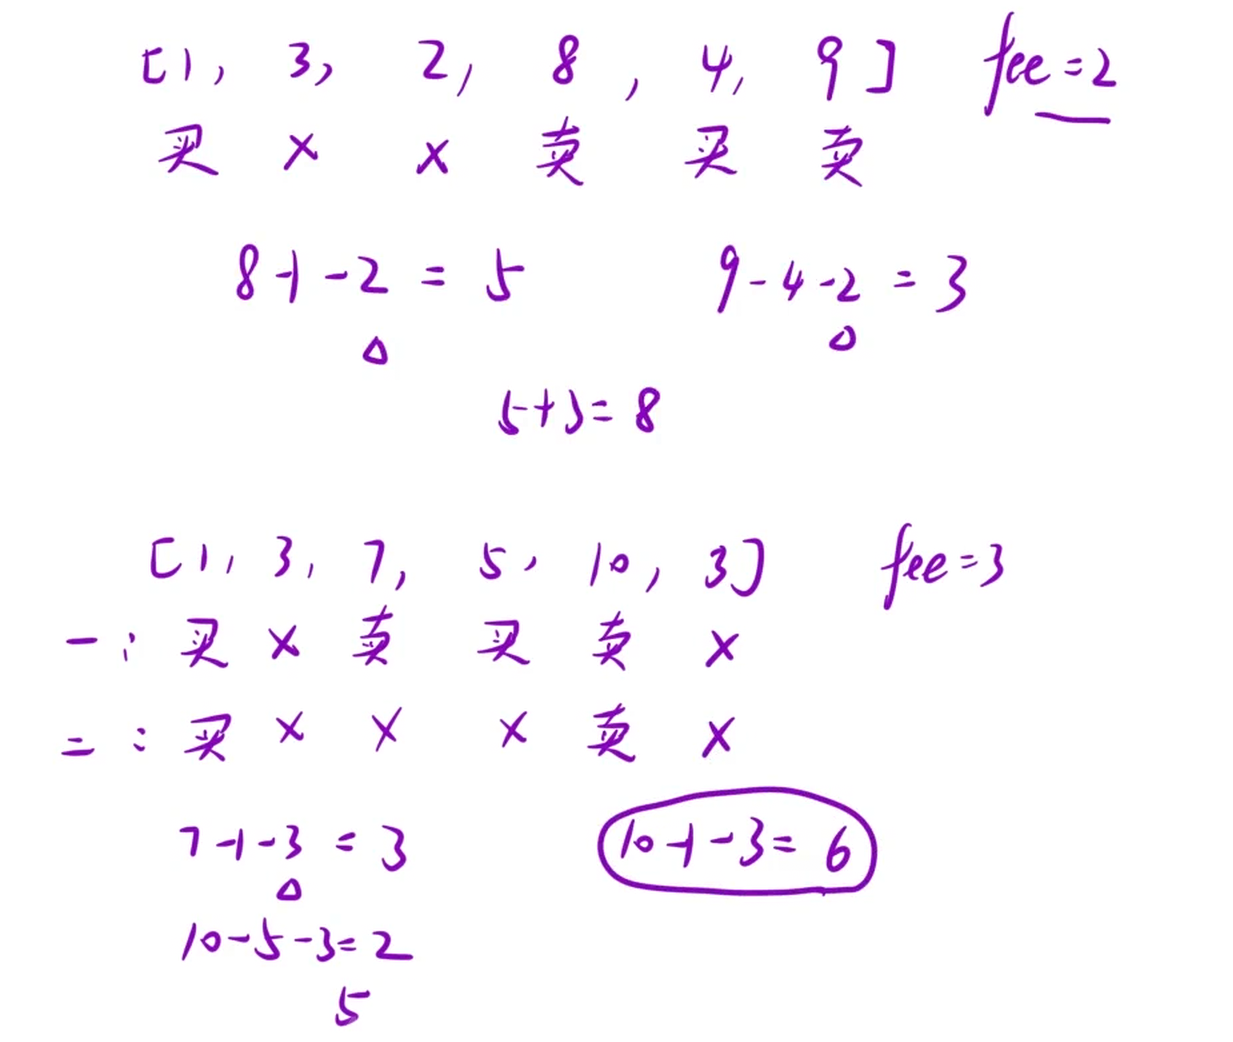 [1, 3, 2, 8, 4, 9] fee=2
买 × × 卖 买 卖
8-1-2=5 9-4-2=3
5+3=8
[1, 3, 7, 5, 10, 3] fee=3
一: 买 × 卖 买 卖 ×
二: 买 × × × 卖 ×
7-1-3=3 10-1-3=6
10-5-3=2
5